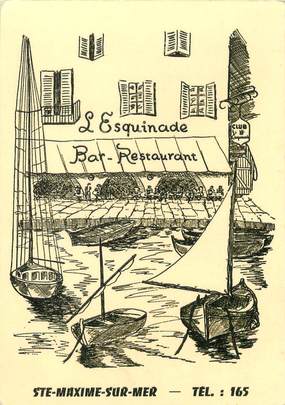 L'Esquinade
Bar-Restaurant
CLUB
STE-MAXIME-SUR-MER — TÉL. : 165